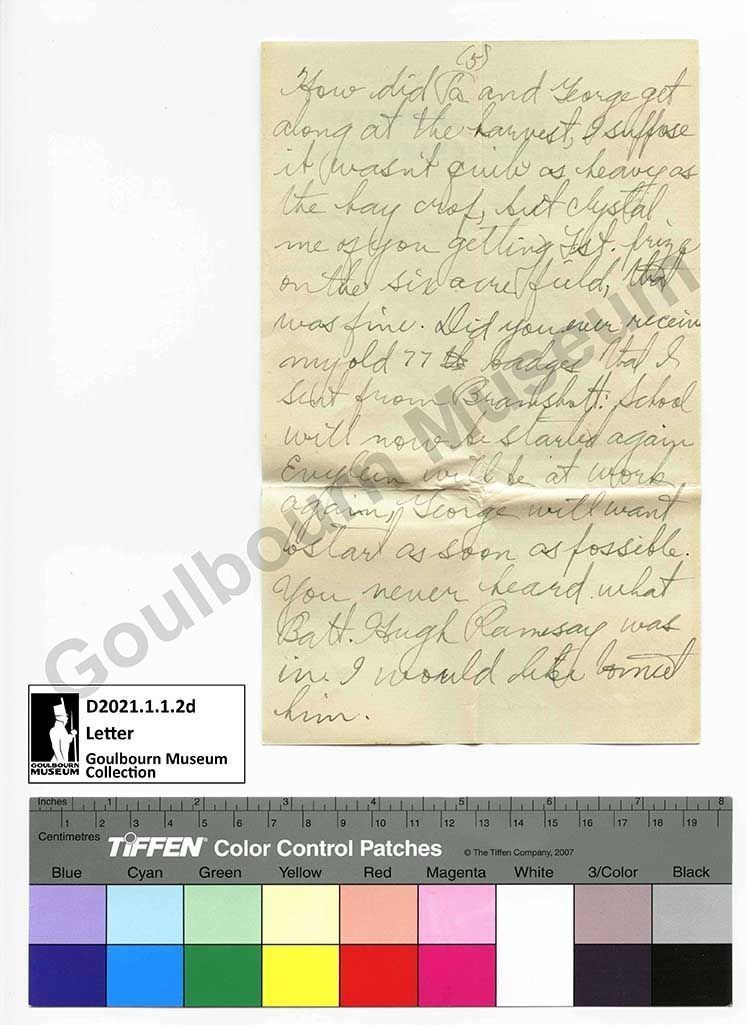 (5)
How did Pa and George get
along at the harvest, I suppose
it wasn't quite as heavy as
the hay crop, but
me of you getting 1st. prize
on the six acre field, that
was fine. Did you ever receive
my old 77 badges that I
sent from Bramshott. School
will now be started again
will be at work
again, George will want
to start as soon as possible.
You never heard what
Batt. Hugh Ramsay was
in. I would like to meet
him.
Goulbourn Museum
D2021.1.1.2d
Letter
Goulbourn Museum
Collection
GOULBOURN
MUSEUM
Inches 1 2 3 4 5 6 7 8
Centimetres 1 2 3 4 5 6 7 8 9 10 11 12 13 14 15 16 17 18 19
TIFFEN® Color Control Patches © The Tiffen Company, 2007
Blue Cyan Green Yellow Red Magenta White 3/Color Black